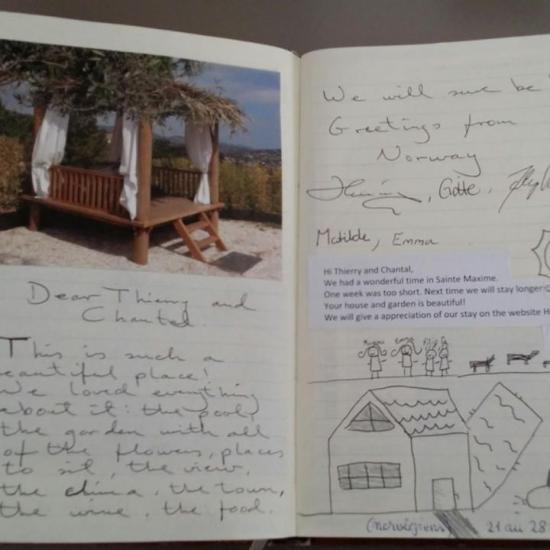 Dear Thierry and
Chantal
This is such a
beautiful place!
We loved everything
about it: the pool,
the garden with all
of the flowers, places
to sit, the view,
the clima, the town,
the wine, the food.
We will sure be
Greetings from
Norway
Gitte,
Matilde, Emma
Hi Thierry and Chantal,
We had a wonderful time in Sainte Maxime.
One week was too short. Next time we will stay longer
Your house and garden is beautiful!
We will give a appreciation of our stay on the website H
(norvégiens)
21 au 28